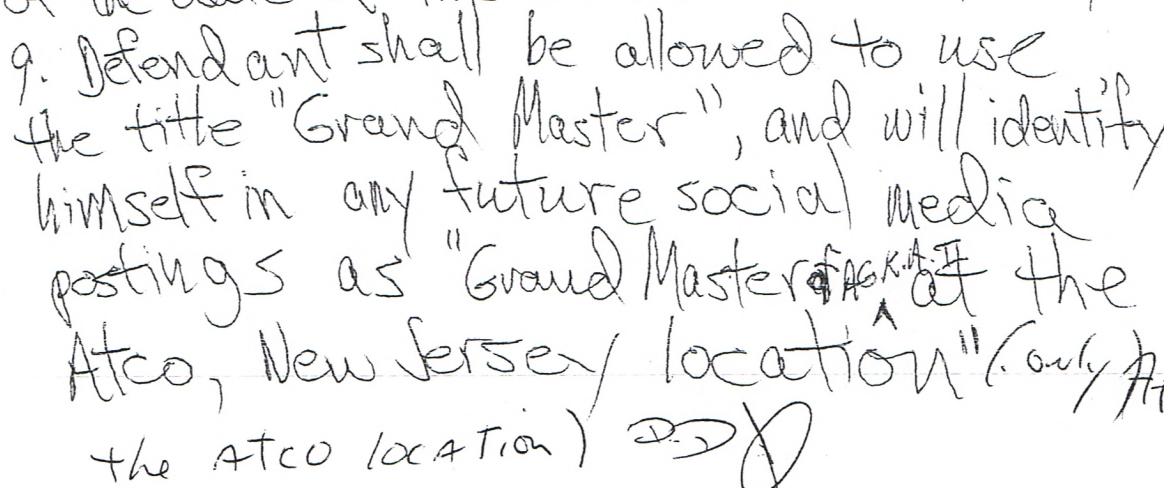 9. Defendant shall be allowed to use
the title "Grand Master", and will identify
himself in any future social media
postings as "Grand Master of AGK.A.I. at the
Atco, New Jersey location" (only At
the ATCO location) D.D